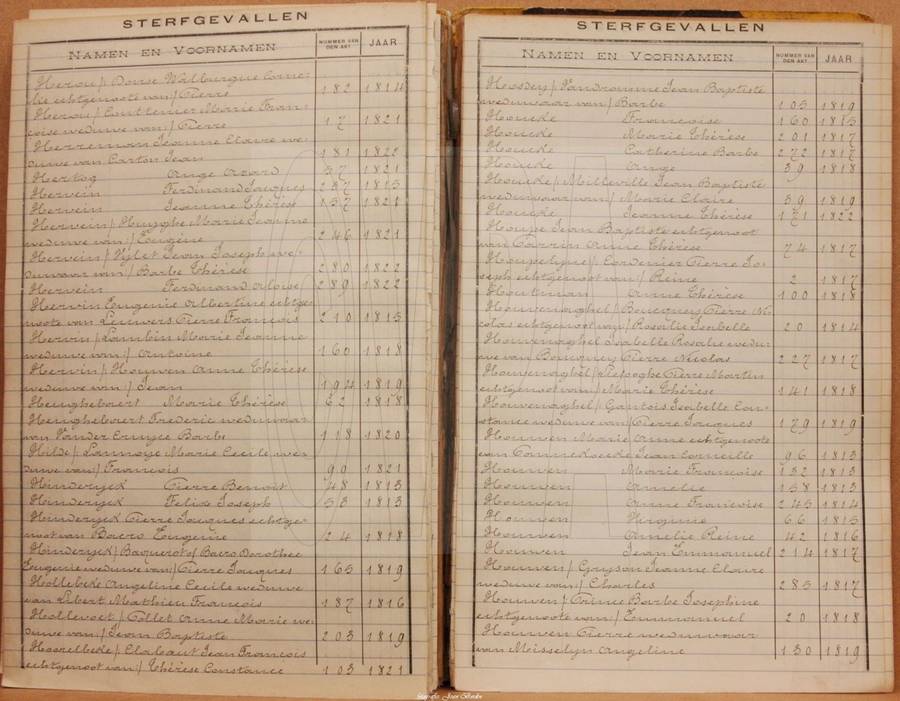 STERFGEVALLEN
NAMEN EN VOORNAMEN NUMMER VAN DEN AKT. JAAR
Herou / Dorse Walburgue Corne-
lie echtgenoote van / Pierre 182 1814
Herou / Marie Fran-
coise weduwe van / Pierre 17 1821
Herreman Jeanne Claire we-
duwe van Carton Jean 181 1822
Hertog Ange 57 1821
Herwein Ferdinand Jacques 237 1815
Herwein Jeanne Thérèse 137 1821
Herwein / Huyghe Marie Jeanne
weduwe van / Eugène 246 1821
Herwein / Jean Joseph we-
duwaar van / Barbe Thérèse 280 1822
Herwein Ferdinand Aloise 289 1822
Herwin Eugenie Albertine echtge-
noote van Leuwers Pierre Francois 210 1815
Herwin / Lambin Marie Jeanne
weduwe van / Antoine 160 1818
Herwin / Houwen Anne Thérèse
weduwe van / Jean 194 1819
Heughebaert Marie Thérèse 62 1818
Heughebaert Frederic weduwaar
van Vander Barbe 118 1820
Hilde / Lannoye Marie Cecile we-
duwe van / Francois 99 1821
Hinderyck Pierre Benoit 48 1813
Hinderyck Felix Joseph 53 1813
Hinderyck Pierre Jacques echtge-
noot van Baers Eugenie 24 1818
Hinderyck / Bacquerot of Baers Dorothee
Eugenie weduwe van / Pierre Jacques 165 1819
Hollebeke Angeline Cecile weduwe
van Libert Mathieu Francois 187 1816
Hollevoet / Collet Anne Marie we-
duwe van / Jean Baptiste 203 1819
Hoorelbeke / Clabaut Jean Francois
echtgenoot van / Thérèse Constance 103 1821
STERFGEVALLEN
NAMEN EN VOORNAMEN NUMMER VAN DEN AKT. JAAR
Hossey / Vandromme Jean Baptiste
weduwaar van / Barbe 105 1819
Houcke Francoise 160 1815
Houcke Marie Thérèse 201 1817
Houcke Catherine Barbe 272 1817
Houcke Ange 39 1818
Houcke / Milleville Jean Baptiste
weduwaar van / Marie Claire 39 1819
Houcke Jeanne Thérèse 171 1822
Houpe Jean Baptiste echtgenoot
van Carrein Anne Thérèse 74 1817
Houpelyne / Cordenier Pierre Jo-
seph echtgenoot van / Reine 2 1817
Houtman Anne Thérèse 100 1818
Houvenaghel / Boucquey Pierre Ni-
colas echtgenoot van / Rosalie Isabelle 20 1814
Houvenaghel Isabelle Rosalie wedu-
we van Boucquey Pierre Nicolas 227 1817
Houvenaghel / Depooghe Pierre Martin
echtgenoot van / Marie Thérèse 141 1818
Houvenaghel / Gantois Isabelle Con-
stance weduwe van / Pierre Jacques 179 1819
Houwen Marie Anne echtgenoote
van Jean Corneille 96 1813
Houwen Marie Francoise 132 1813
Houwen Amelie 158 1813
Houwen Anne Francoise 245 1814
Houwen Virginie 66 1815
Houwen Amelie Reine 42 1816
Houwen Jean Emmanuel 214 1817
Houwen / Gryson Jeanne Claire
weduwe van / Charles 285 1817
Houwen / Barbe Josephine
echtgenoote van / Emmanuel 20 1818
Houwen Pierre weduwaar
van Misselyn Angeline 130 1819